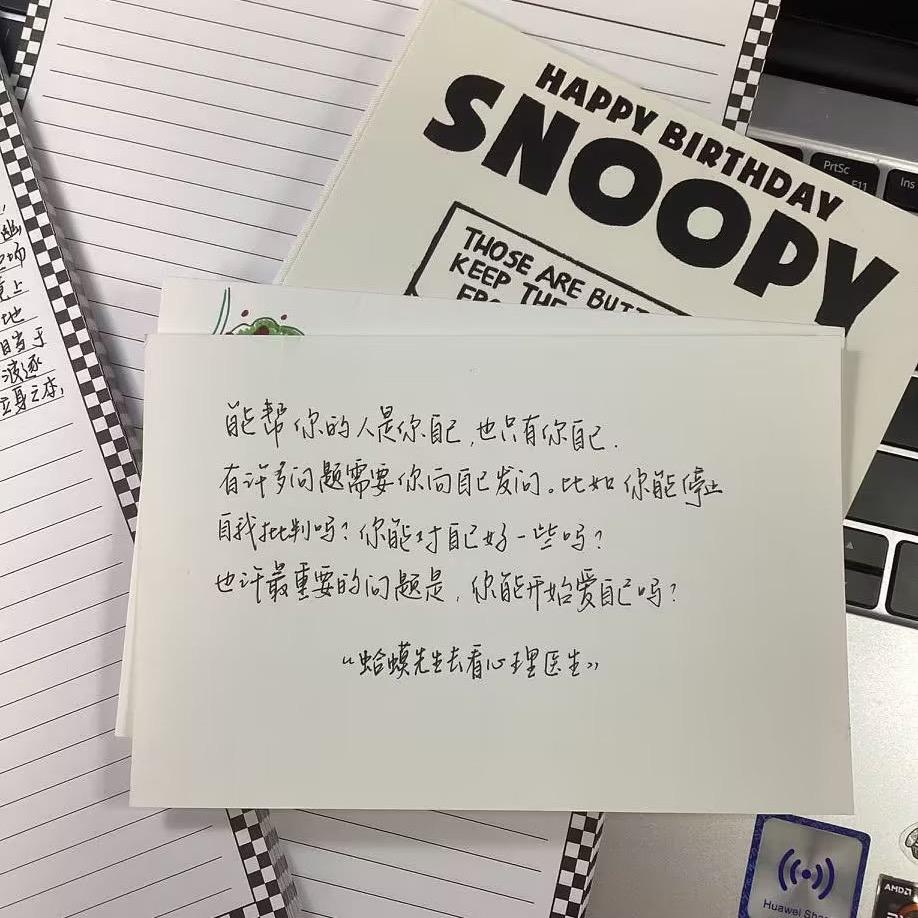 HAPPY BIRTHDAY
SNOOPY
THOSE ARE
KEEP THE
PrtSc
F11
Ins
场
上
地
当于
波逐
立身之本,
能帮你的人是你自己,也只有你自己.
有许多问题需要你向自己发问。比如你能停止
自我批判吗?你能对自己好一些吗?
也许最重要的问题是,你能开始爱自己吗?
“蛤蟆先生去看心理医生”
Huawei
AMD